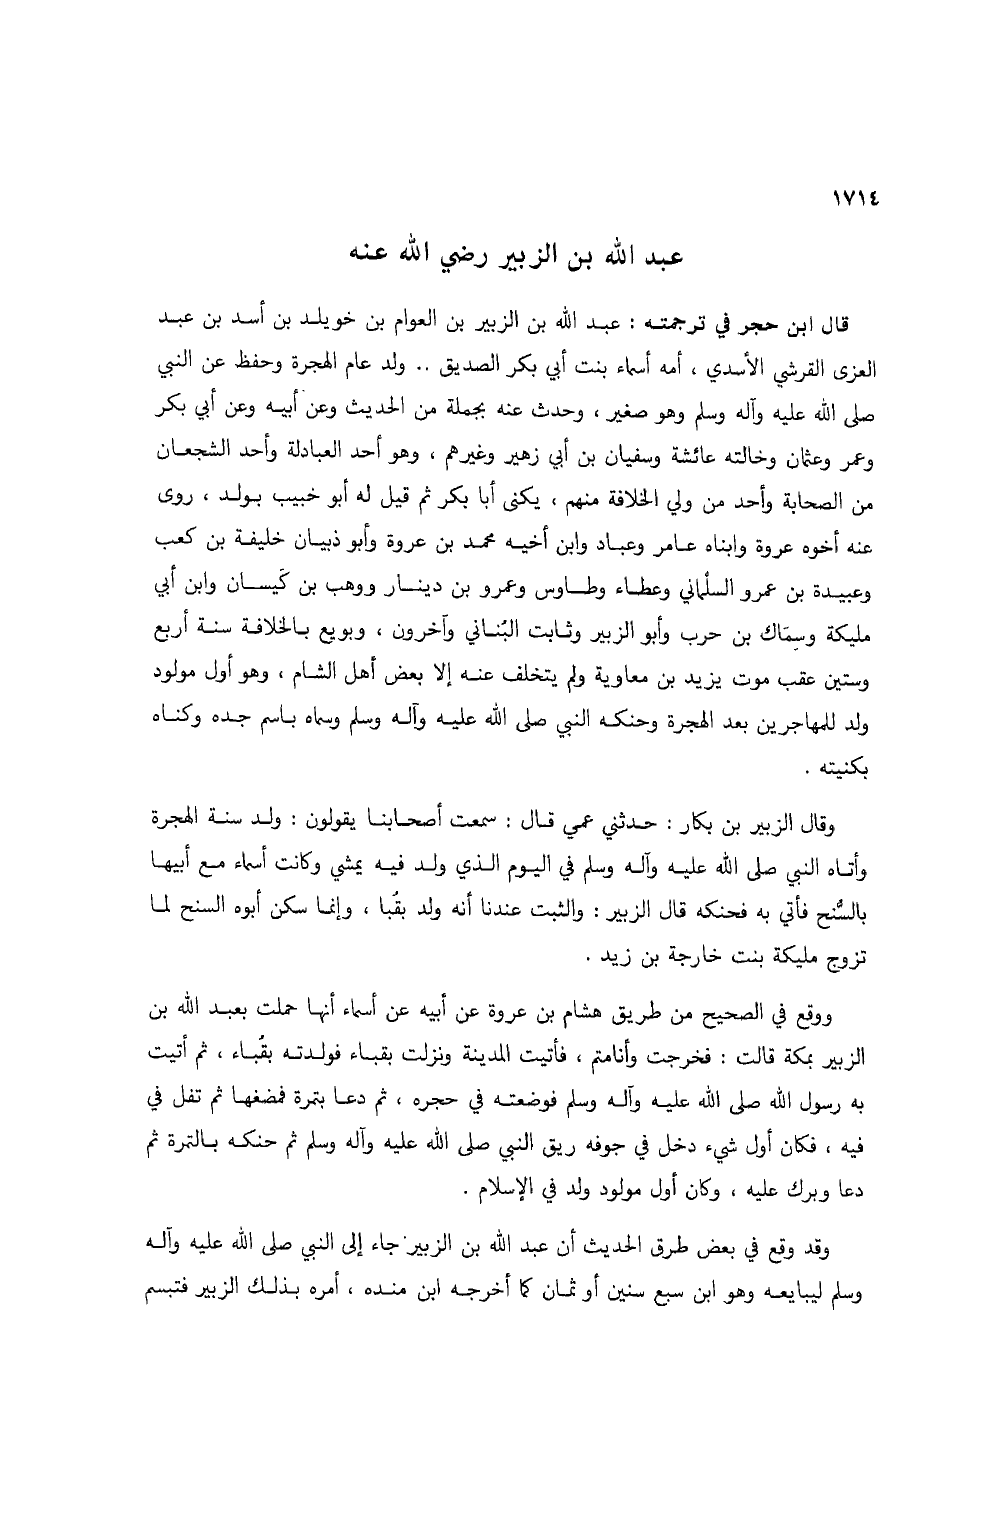 ١٧١٤
عبد الله بن الزبير رضي الله عنه
قال ابن حجر في ترجمته : عبد الله بن الزبير بن العوام بن خويلد بن أسد بن عبد
العزى القرشي الأسدي ، أمه أسماء بنت أبي بكر الصديق .. ولد عام الهجرة وحفظ عن النبي
صلى الله عليه وآله وسلم وهو صغير ، وحدث عنه بجملة من الحديث وعن أبيه وعن أبي بكر
وعمر وعثمان وخالته عائشة وسفيان بن أبي زهير وغيرهم ، وهو أحد العبادلة وأحد الشجعان
من الصحابة وأحد من ولي الخلافة منهم ، يكنى أبا بكر ثم قيل له أبو خبيب بولد ، روى
عنه أخوه عروة وابناه عامر وعباد وابن أخيه محمد بن عروة وأبو ذبيان خليفة بن كعب
وعبيدة بن عمرو السلْماني وعطاء وطاوس وعمرو بن دينار ووهب بن كَيسان وابن أبي
مليكة وسِمَاك بن حرب وأبو الزبير وثابت البُناني وآخرون ، وبويع بالخلافة سنة أربع
وستين عقب موت يزيد بن معاوية ولم يتخلف عنه إلا بعض أهل الشام ، وهو أول مولود
ولد للمهاجرين بعد الهجرة وحنكه النبي صلى الله عليه وآله وسلم وسماه باسم جده وكناه
بكنيته .
وقال الزبير بن بكار : حدثني عمي قال : سمعت أصحابنا يقولون : ولد سنة الهجرة
وأتاه النبي صلى الله عليه وآله وسلم في اليوم الذي ولد فيه يمشي وكانت أسماء مع أبيها
بالسُّنح فأتي به فحنكه قال الزبير : والثبت عندنا أنه ولد بقُبا ، وإنما سكن أبوه السنح لما
تزوج مليكة بنت خارجة بن زيد .
ووقع في الصحيح من طريق هشام بن عروة عن أبيه عن أسماء أنها حملت بعبد الله بن
الزبير بمكة قالت : فخرجت وأنامتم ، فأتيت المدينة ونزلت بقباء فولدته بقُباء ، ثم أتيت
به رسول الله صلى الله عليه وآله وسلم فوضعته في حجره ، ثم دعا بتمرة فمضغها ثم تفل في
فيه ، فكان أول شيء دخل في جوفه ريق النبي صلى الله عليه وآله وسلم ثم حنكه بالتمرة ثم
دعا وبرك عليه ، وكان أول مولود ولد في الإسلام .
وقد وقع في بعض طرق الحديث أن عبد الله بن الزبير جاء إلى النبي صلى الله عليه وآله
وسلم ليبايعه وهو ابن سبع سنين أو ثمان كما أخرجه ابن منده ، أمره بذلك الزبير فتبسم